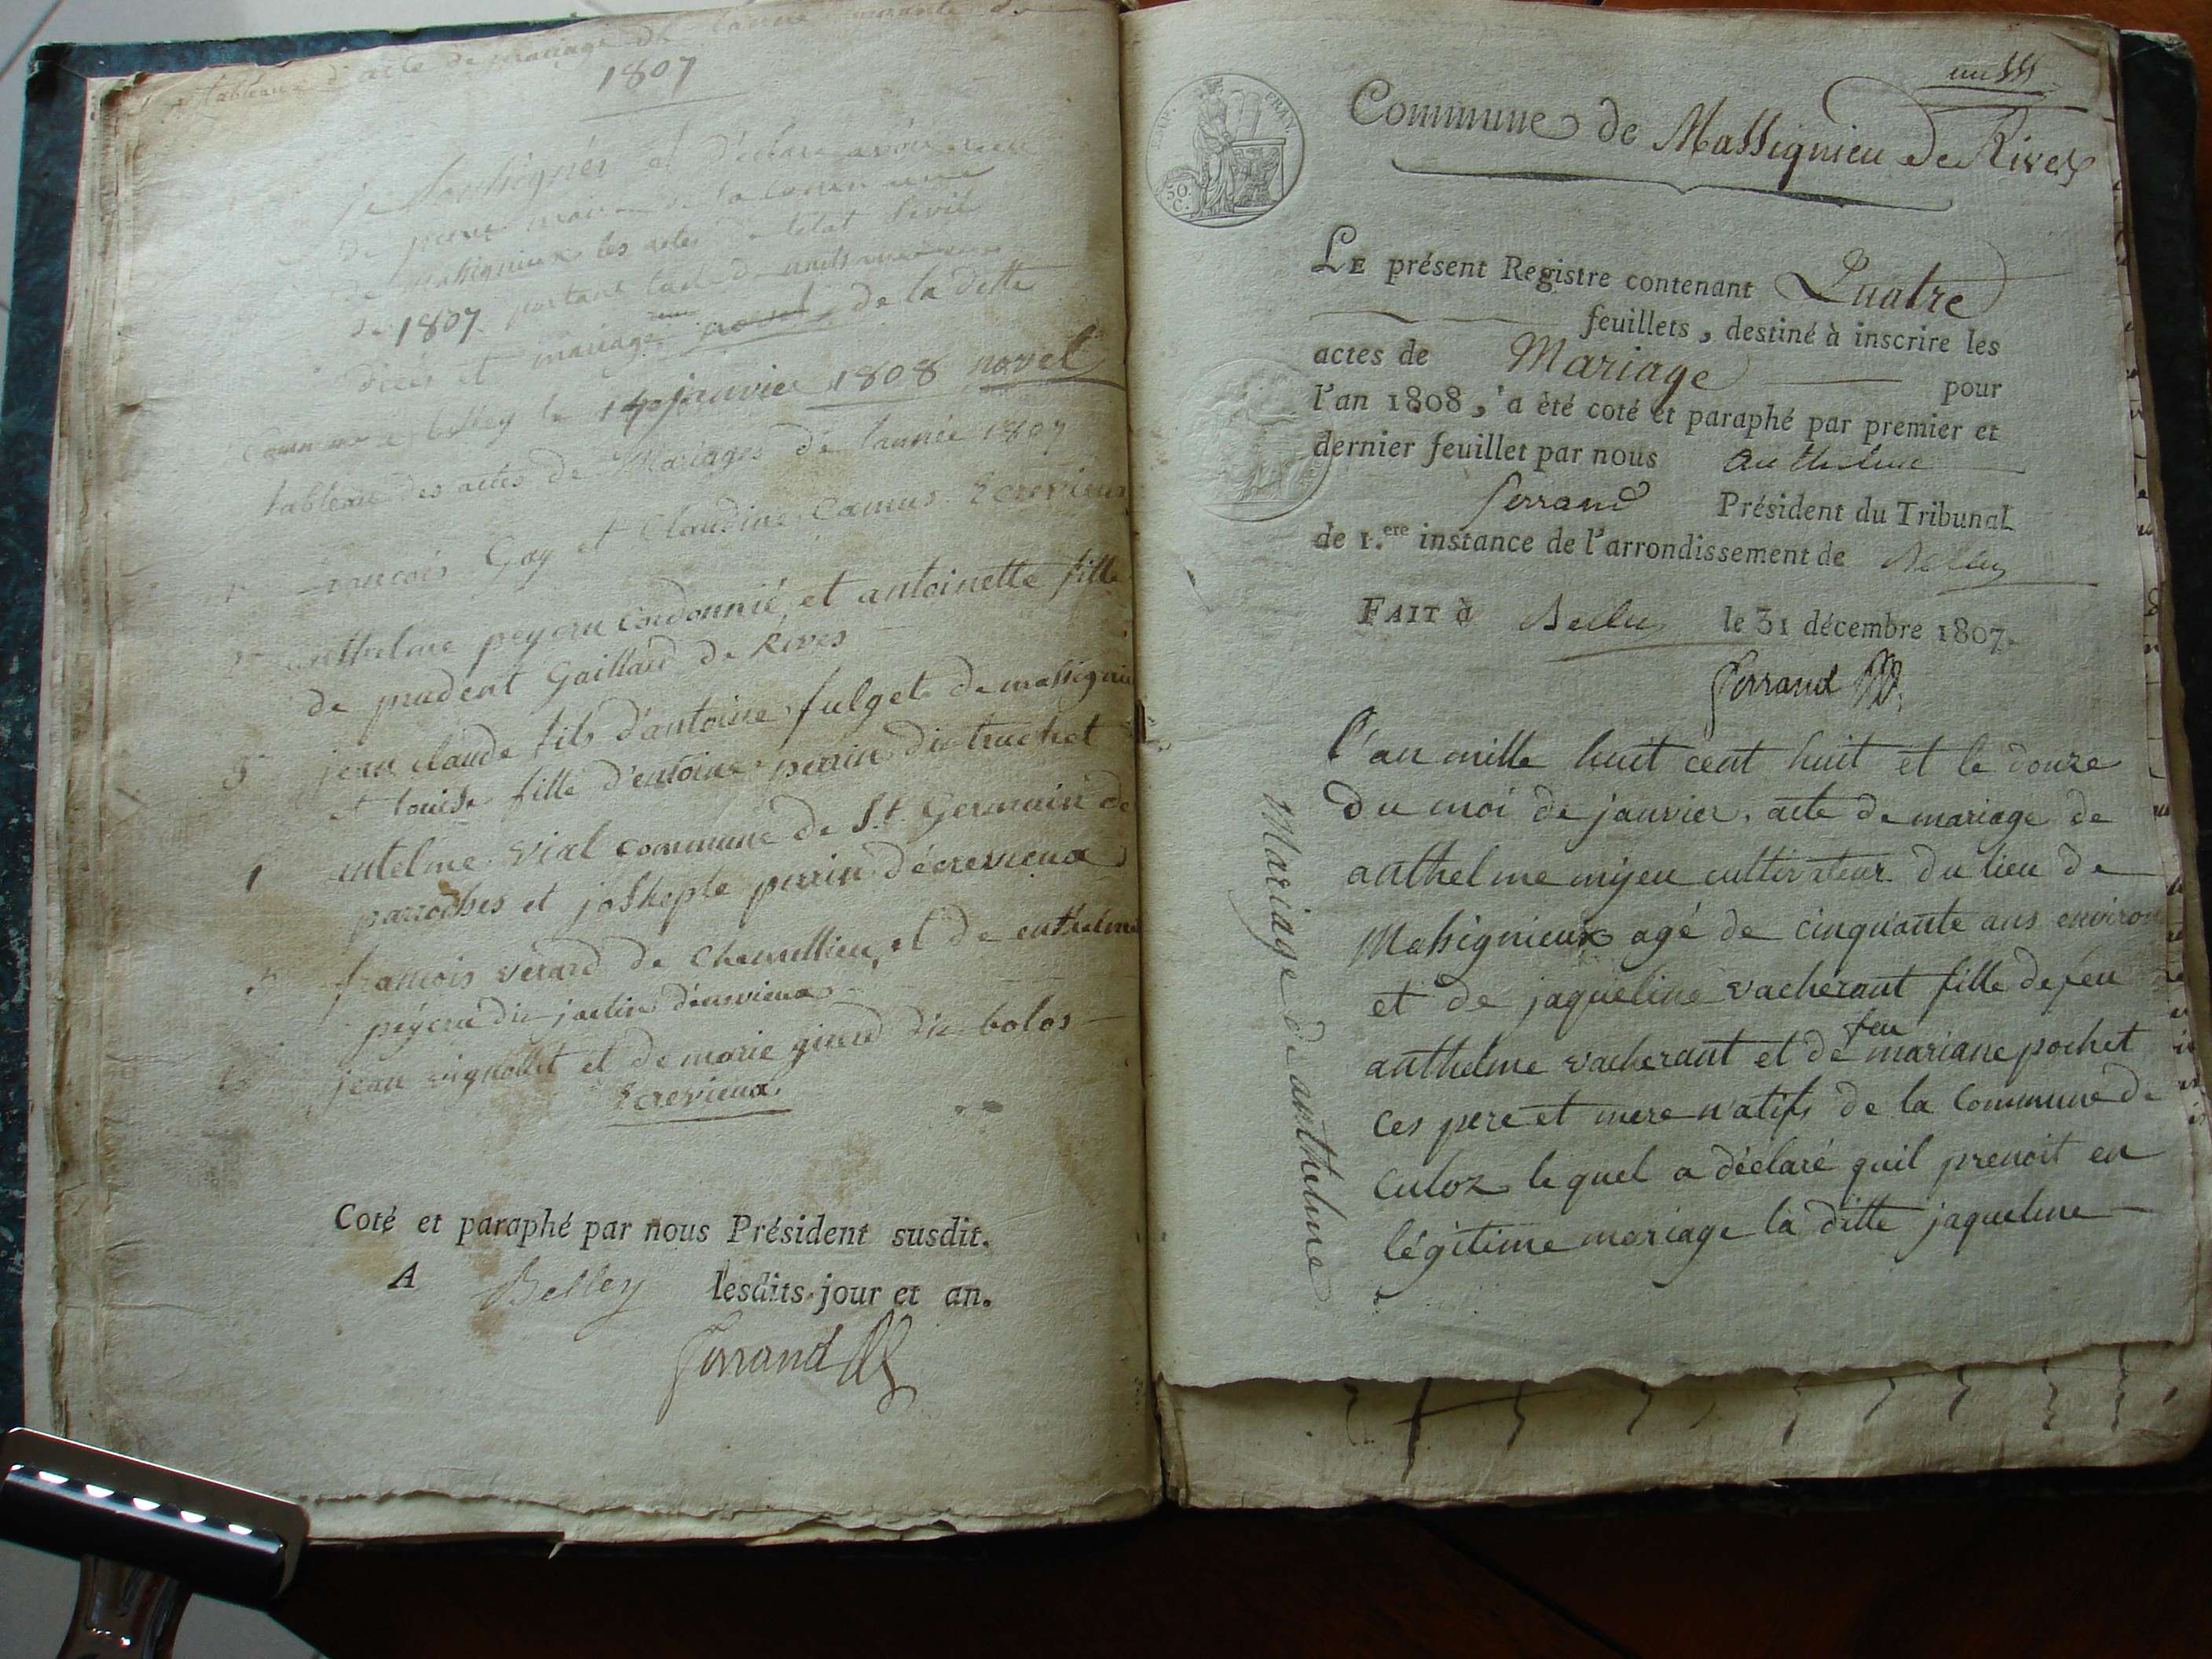 tableaux d'acte de mariage de l'anne
1807
je soussignés et déclare avoir
de maire de la commune
de massignieux les actes de letat sivil
de 1807 portant
dicés et mariage de la ditte
commune belley le 14 janvier 1808 novel
tableau des actes de Mariages de lannée 1807
françois Goy et Claudine Camus Ecrevieux
2 anthelme peyron cordonnié et antoinette fille
de prudent Gaillard de Rives
3 jean claude fils d'antoine fulget de massignieu
et louise fille d'entoine perrin dit truchet
entelme vial commune de St. Germain de
parroches et joshephte perrin d'écrevieux
françois verard de Chemillieu et de enthelme
peyron dit d'écrevieux
jean vignollet et de marie girerd dit bolos
Ecrevieux
Coté et paraphé par nous Président susdit.
A Belley lesdits jour et an.
Ferrand
un
EMP. FRAN.
50.
C.
Commune de Massignieu de Rives
LE présent Registre contenant Quatre
feuillets, destiné à inscrire les
actes de Mariage pour
l'an 1808, a été coté et paraphé par premier et
dernier feuillet par nous Anthelme
Ferrand Président du Tribunal
de 1.ere instance de l'arrondissement de Belley
FAIT à Belley le 31 décembre 1807.
Ferrand
l'an mille huit cent huit et le douze
du moi de janvier, acte de mariage de
anthelme myeu cultivateur du lieu de
Massignieux agé de cinquante ans environ
et de jaqueline vacherant fille de feu
anthelme vacherant et de feu mariane pochet
ces pere et mere natifs de la Commune de
Culoz lequel a déclaré quil prenoit en
légitime mariage la ditte jaqueline
Mariage de anthelme